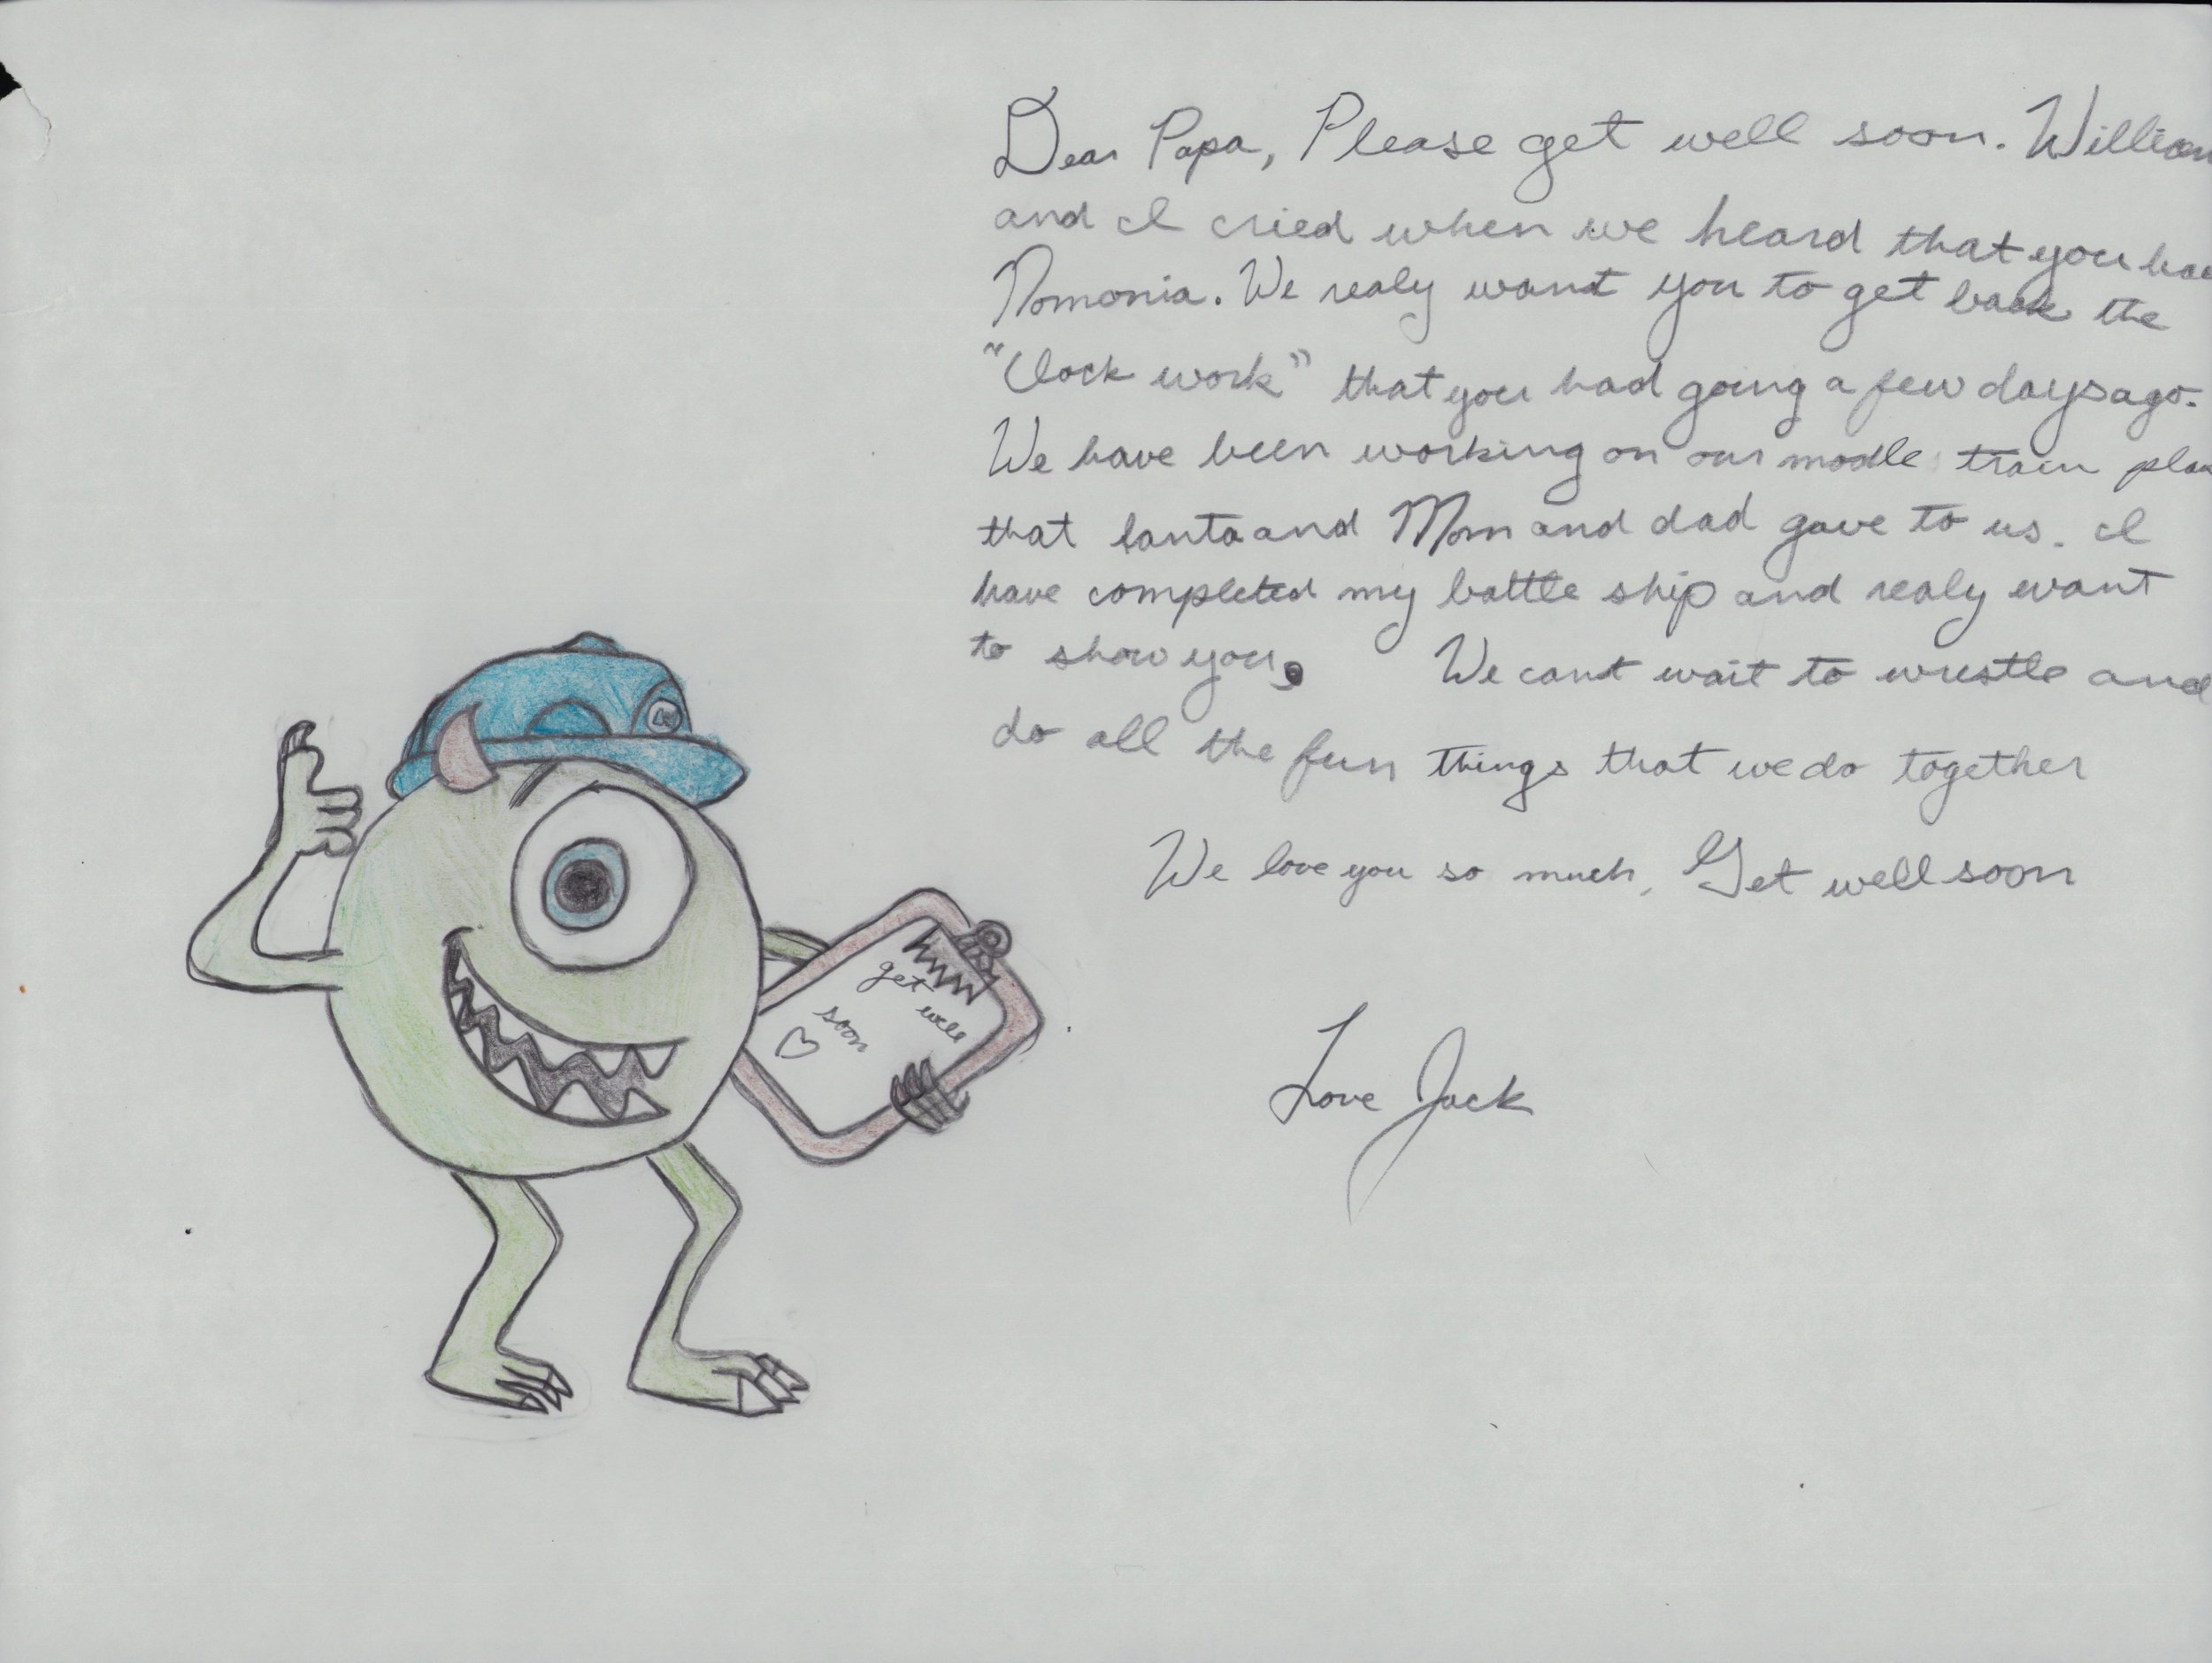 Dear Papa, Please get well soon. William
and I cried when we heard that you had
Nomonia. We realy want you to get back the
"Clock work" that you had going a few days ago.
We have been working on our modle train
that Santa and Mom and dad gave to us. I
have completed my battle ship and realy want
to show you. We cant wait to wrestle and
do all the fun things that we do together
We love you so much, Get well soon
Love Jack
get well
soon